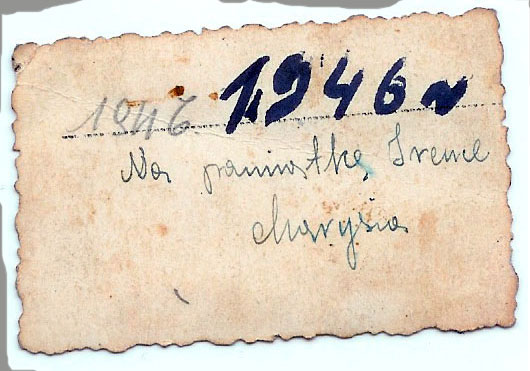 1946. 1946 r
Na pamiątkę Irence
Marysia